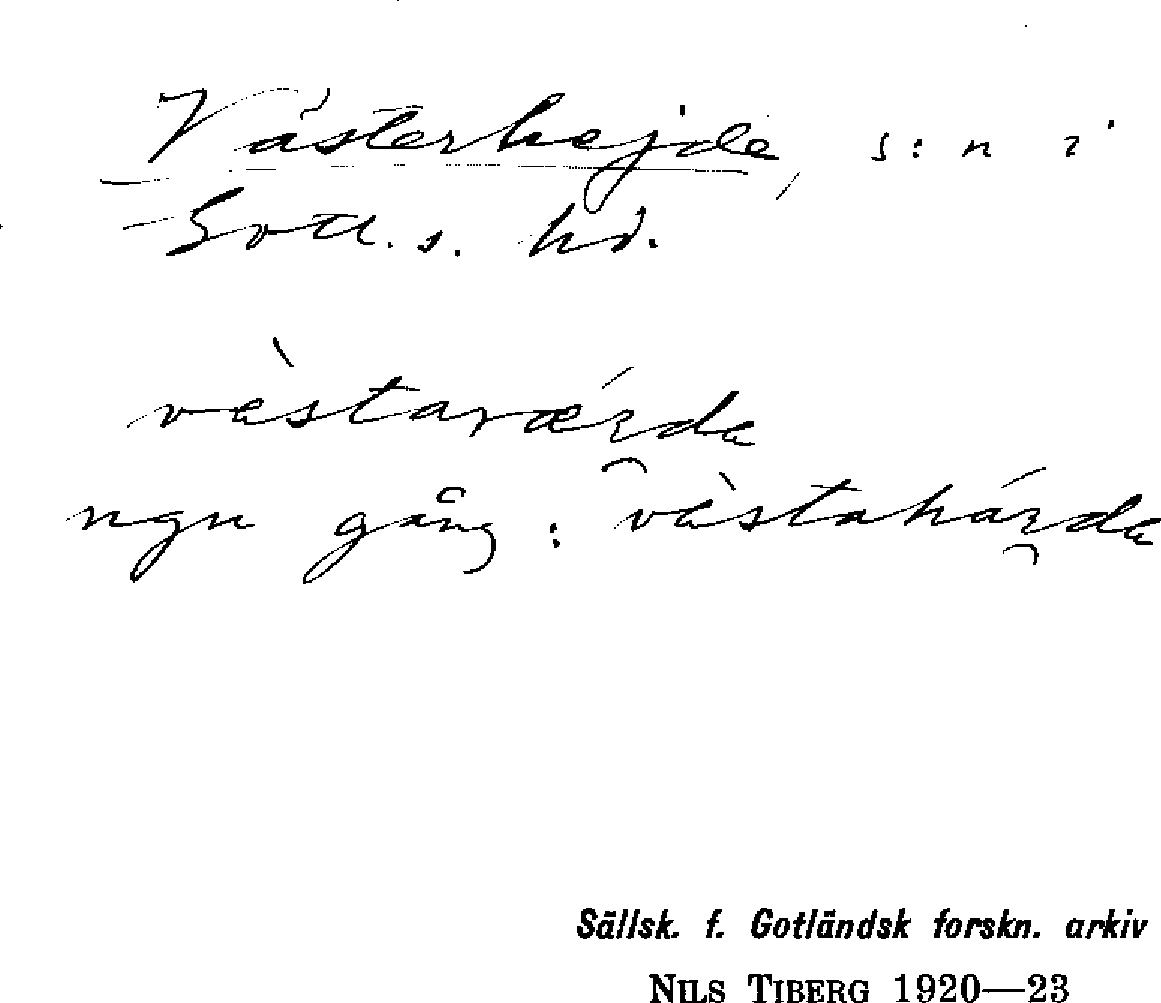 Västerhejde, s:n i
Gotl. s. hd.
vàstaværda
ngn gång: vàstahárda
Sällsk. f. Gotländsk forskn. arkiv
NILS TIBERG 1920—23